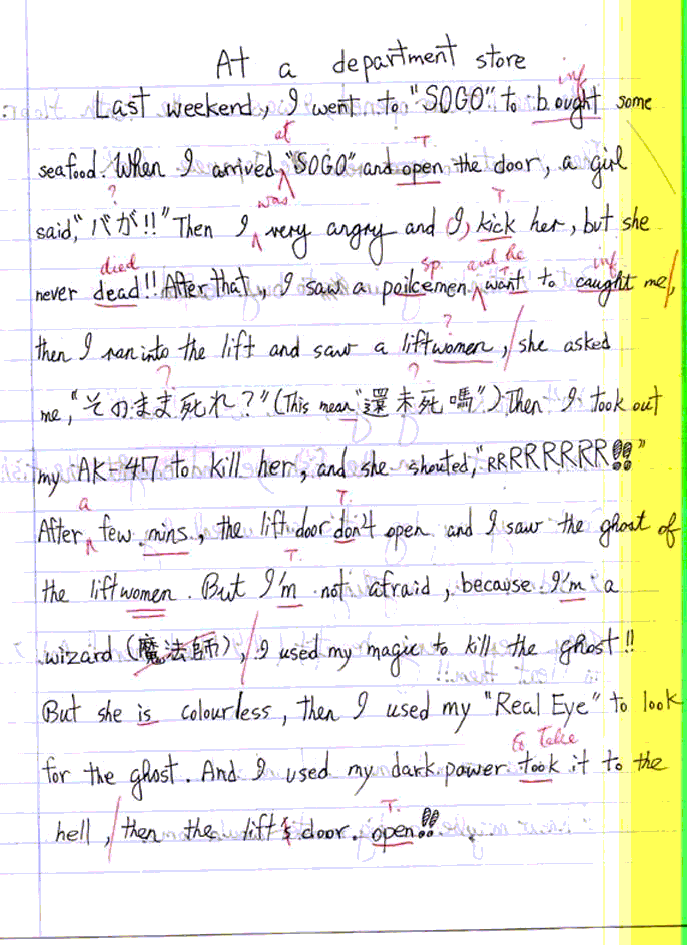 At a department store
inf
Last weekend, I went to "SOGO" to bought some
at T
seafood. When I arrived "SOGO" and open the door, a girl
? was T
said, "バが!!" Then I very angry and I, kick her, but she
died sp. and he T inf
never dead!! After that, I saw a poilcemen want to caught me,
?
then I ran into the lift and saw a liftwomen, she asked
? ?
me, "そのまま死れ?" (This mean "還未死嗎") Then I took out
my AK-47 to kill her, and she shouted, "RRRRRRRR!!"
a T.
After few mins, the lift door don't open and I saw the ghost of
T.
the liftwomen. But I'm not afraid, because I'm a
wizard (魔法師), I used my magic to kill the ghost!!
But she is colourless, then I used my "Real Eye" to look
to take
for the ghost. And I used my dark power took it to the
T.
hell, then the lift's door. open!!